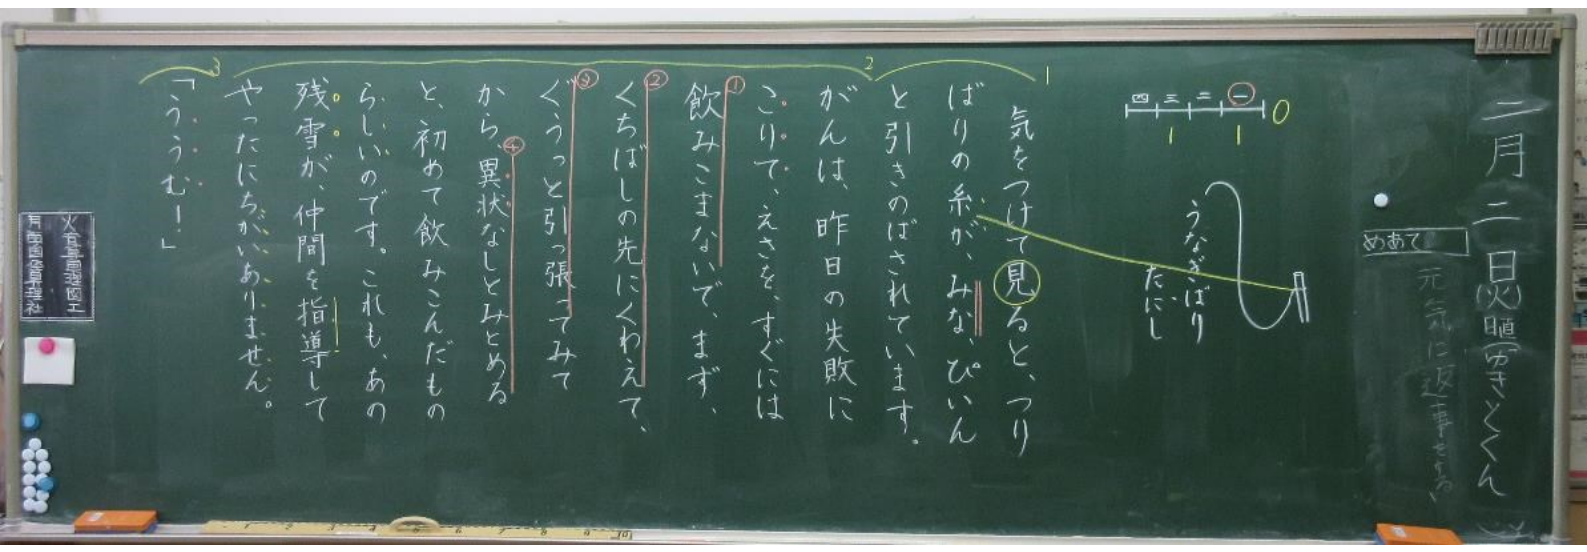 二月二日(火)
めあて
元気に返事をする
四 三 二 一 0
1 1
うなぎばり
たにし
1
気をつけて見ると、つり
ばりの糸が、みな、ぴいん
と引きのばされています。
2
がんは、昨日の失敗に
こりて、えさを、すぐには
①
飲みこまないで、まず、
②
くちばしの先にくわえて、
③
ぐうっと引っ張ってみて
④
から、異状なしとみとめる
と、初めて飲みこんだもの
らしいのです。これも、あの
残雪が、仲間を指導して
やったにちがいありません。
3
「ううむ!」